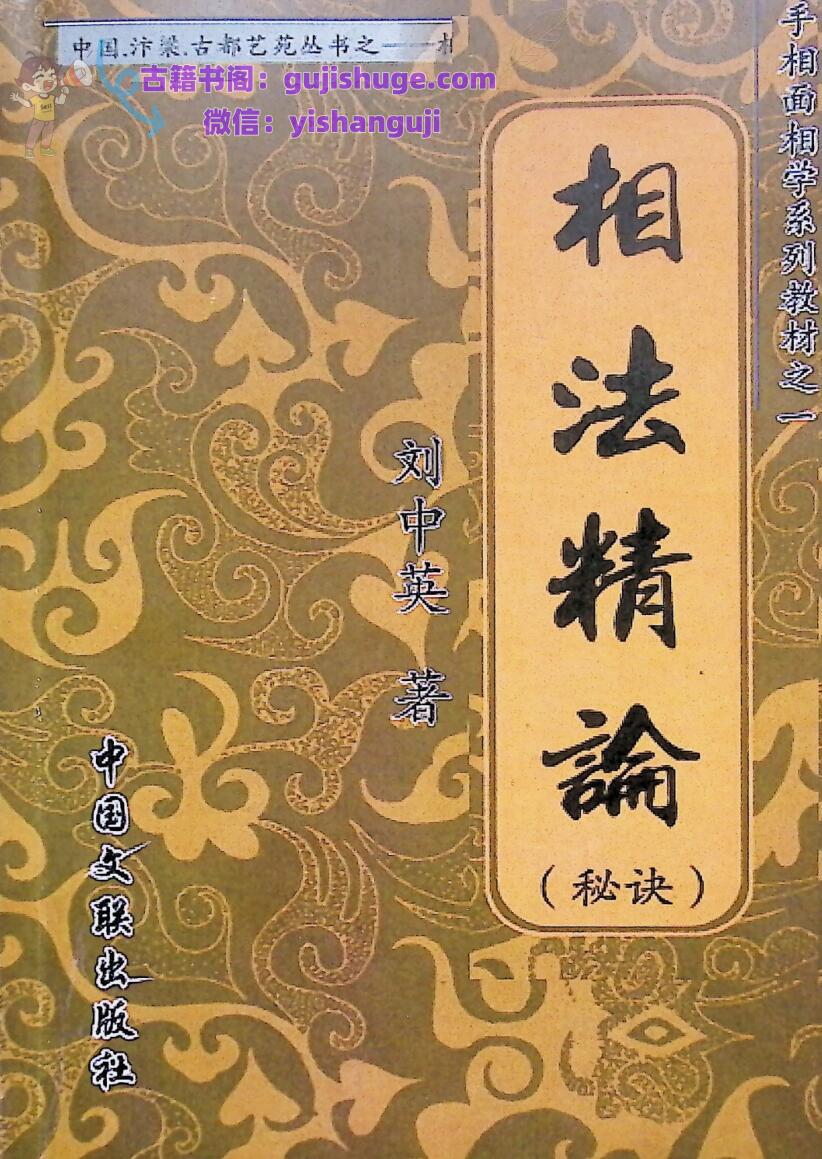 中国.汴梁.古都艺苑丛书之一——相
古籍书阁：gujishuge.com
微信：yishanguji
手相面相学系列教材之一
相法精論
（秘诀）
刘中英 著
中国文联出版社